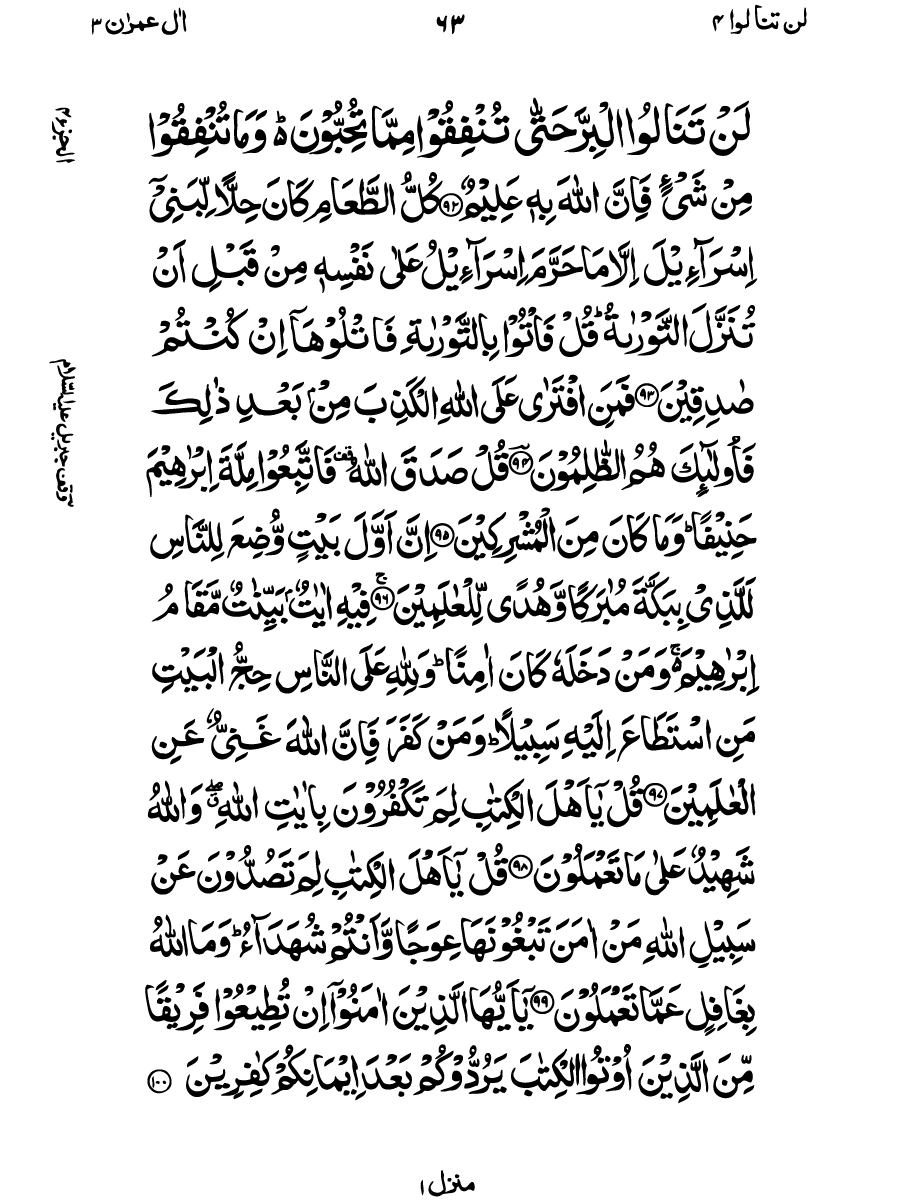 لن تنالوا ۴
۶۳
اٰل عمرٰن ۳
لَنْ تَنَالُوا الْبِرَّ حَتّٰى تُنْفِقُوْا مِمَّا تُحِبُّوْنَ ؕ۬ وَمَا تُنْفِقُوْا
مِنْ شَىْءٍ فَاِنَّ اللّٰهَ بِهٖ عَلِيْمٌ ﴿۹۲﴾ كُلُّ الطَّعَامِ كَانَ حِلًّا لِّبَنِىْٓ
اِسْرَآءِيْلَ اِلَّا مَا حَرَّمَ اِسْرَآءِيْلُ عَلٰى نَفْسِهٖ مِنْ قَبْلِ اَنْ
تُنَزَّلَ التَّوْرٰىةُ ؕ قُلْ فَاْتُوْا بِالتَّوْرٰىةِ فَاتْلُوْهَاۤ اِنْ كُنْتُمْ
صٰدِقِيْنَ ﴿۹۳﴾ فَمَنِ افْتَرٰى عَلَى اللّٰهِ الْكَذِبَ مِنْۢ بَعْدِ ذٰلِكَ
فَاُولٰٓئِكَ هُمُ الظّٰلِمُوْنَ ﴿۹۴﴾ قُلْ صَدَقَ اللّٰهُ قف فَاتَّبِعُوْا مِلَّةَ اِبْرٰهِيْمَ
حَنِيْفًا ؕ وَمَا كَانَ مِنَ الْمُشْرِكِيْنَ ﴿۹۵﴾ اِنَّ اَوَّلَ بَيْتٍ وُّضِعَ لِلنَّاسِ
لَلَّذِىْ بِبَكَّةَ مُبٰرَكًا وَّهُدًى لِّلْعٰلَمِيْنَ ۚ﴿۹۶﴾ فِيْهِ اٰيٰتٌۢ بَيِّنٰتٌ مَّقَامُ
اِبْرٰهِيْمَ ۚ۬ وَمَنْ دَخَلَهٗ كَانَ اٰمِنًا ؕ وَلِلّٰهِ عَلَى النَّاسِ حِجُّ الْبَيْتِ
مَنِ اسْتَطَاعَ اِلَيْهِ سَبِيْلًا ؕ وَمَنْ كَفَرَ فَاِنَّ اللّٰهَ غَنِىٌّ عَنِ
الْعٰلَمِيْنَ ﴿۹۷﴾ قُلْ يٰۤاَهْلَ الْكِتٰبِ لِمَ تَكْفُرُوْنَ بِاٰيٰتِ اللّٰهِ ۖۗ وَاللّٰهُ
شَهِيْدٌ عَلٰى مَا تَعْمَلُوْنَ ﴿۹۸﴾ قُلْ يٰۤاَهْلَ الْكِتٰبِ لِمَ تَصُدُّوْنَ عَنْ
سَبِيْلِ اللّٰهِ مَنْ اٰمَنَ تَبْغُوْنَهَا عِوَجًا وَّاَنْتُمْ شُهَدَآءُ ؕ وَمَا اللّٰهُ
بِغَافِلٍ عَمَّا تَعْمَلُوْنَ ﴿۹۹﴾ يٰۤاَيُّهَا الَّذِيْنَ اٰمَنُوْۤا اِنْ تُطِيْعُوْا فَرِيْقًا
مِّنَ الَّذِيْنَ اُوْتُوا الْكِتٰبَ يَرُدُّوْكُمْ بَعْدَ اِيْمَانِكُمْ كٰفِرِيْنَ ﴿۱۰۰﴾
الجزء ۴
وقف جبریل علیہ السّلام
منزل ۱